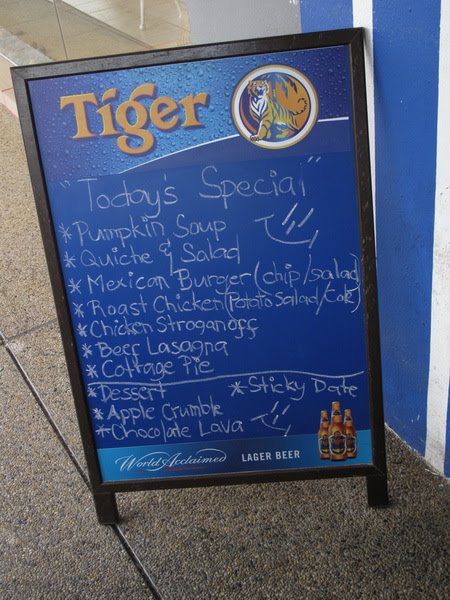 Tiger
"Today's Special"
* Pumpkin Soup
* Quiche & Salad
* Mexican Burger (chip/salad)
* Roast Chicken (Potato Salad/Cole)
* Chicken Stroganoff
* Beef Lasagna
* Cottage Pie
* Dessert * Sticky Date
* Apple Crumble
* Chocolate Lava
World Acclaimed LAGER BEER